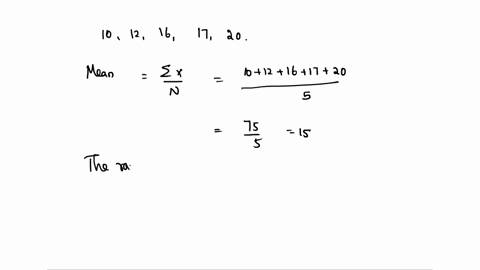 10, 12, 16, 17, 20.
Mean = Σx/N = 10+12+16+17+20/5
= 75/5 = 15
The ra